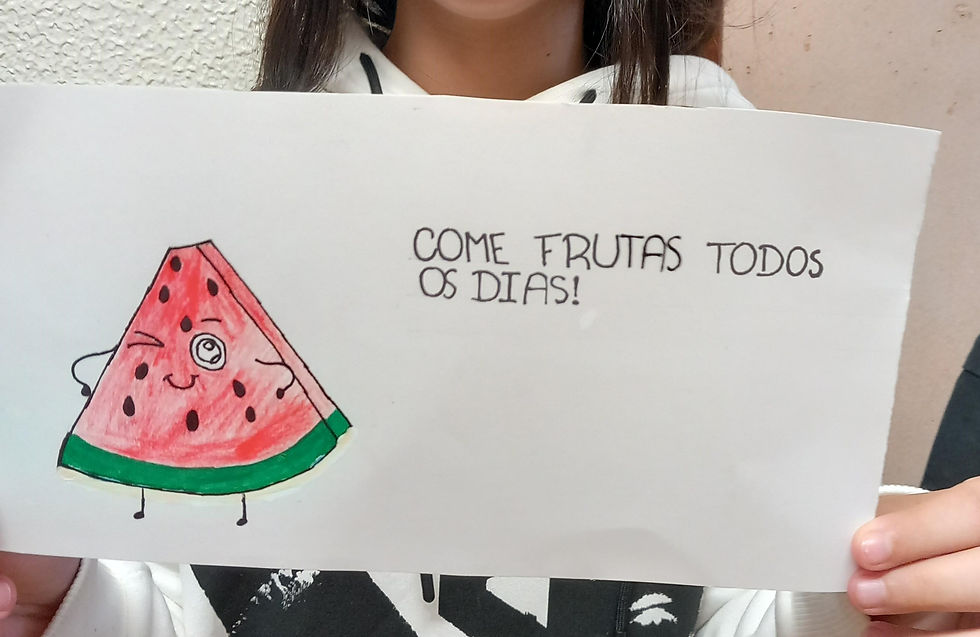 COME FRUTAS TODOS
OS DIAS!